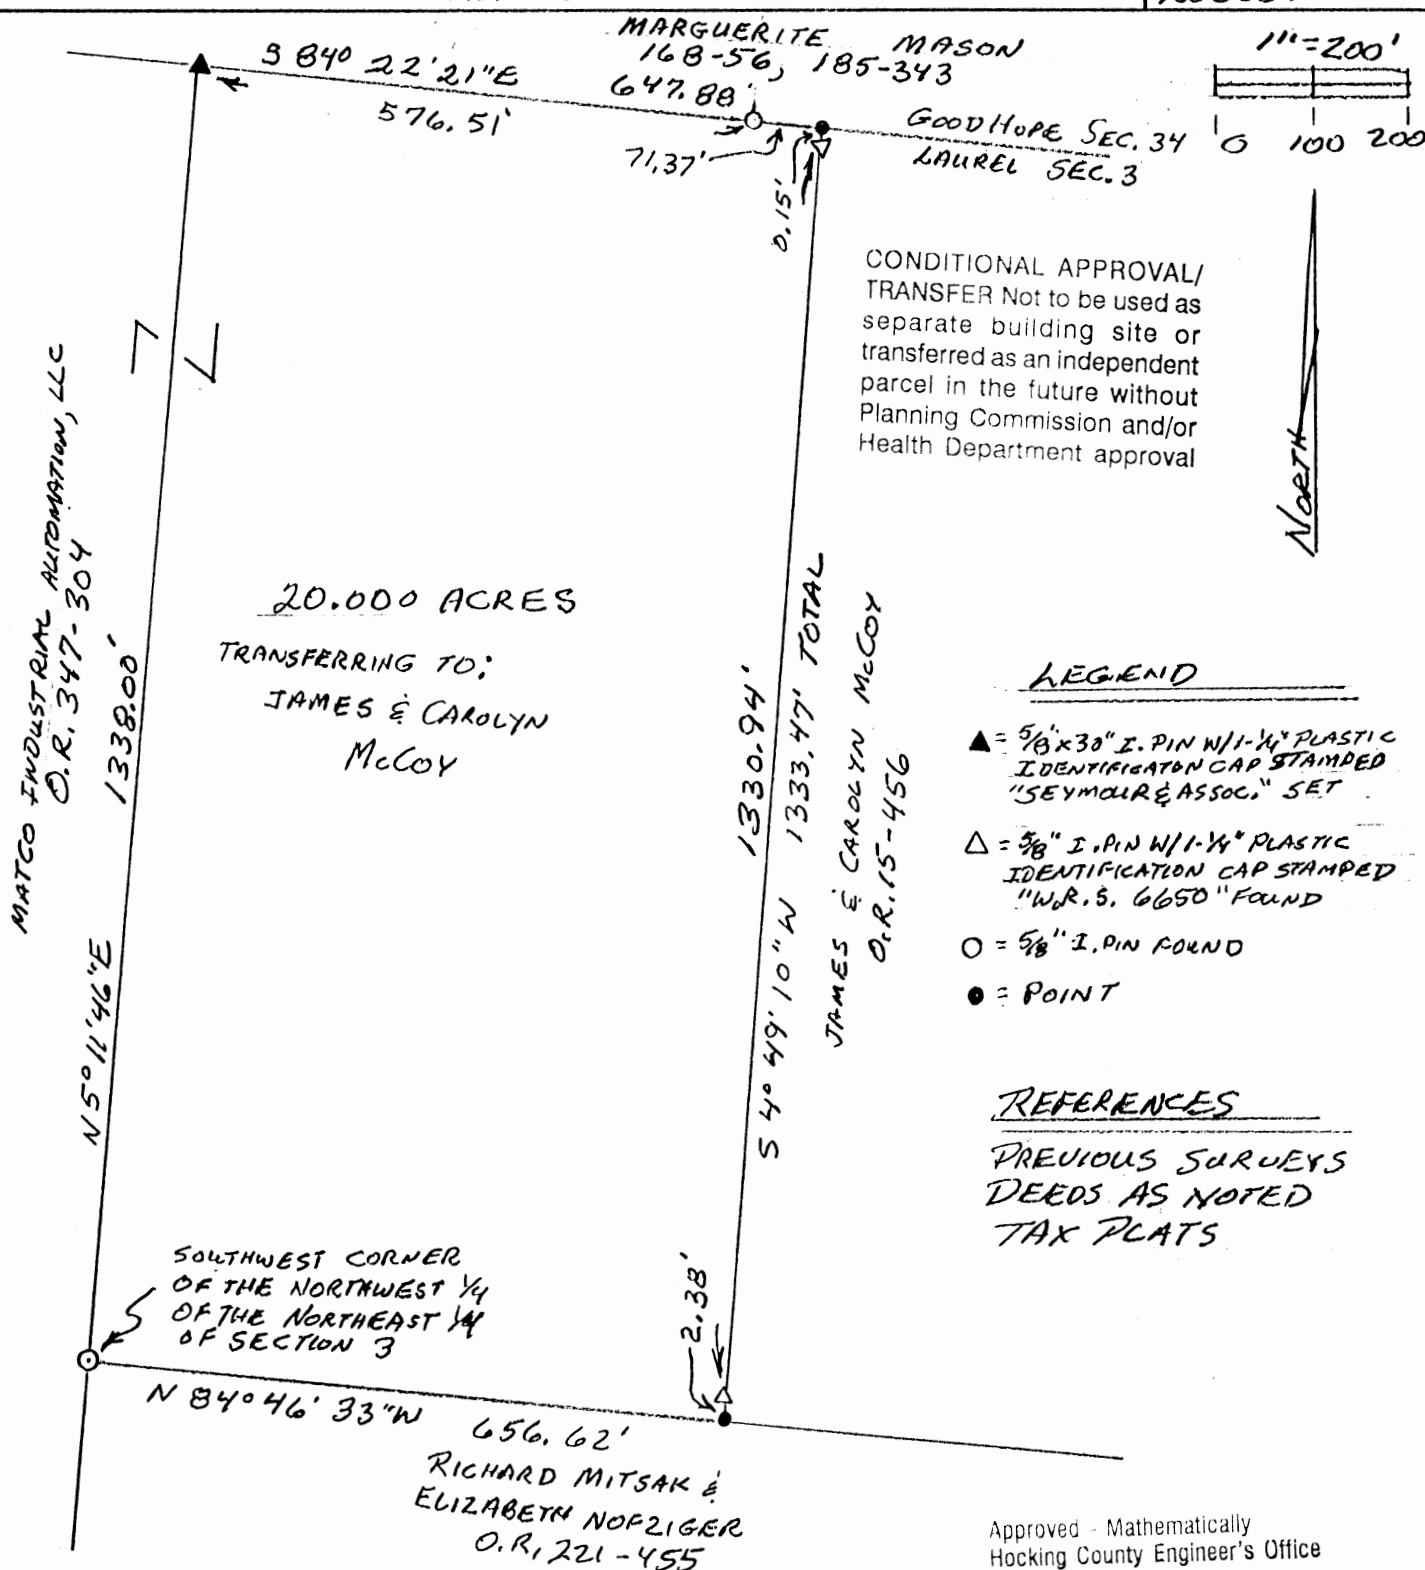 MARGUERITE MASON
168-56, 185-343
S 84° 22' 21" E
647.88'
576.51'
71.37'
0.15'
GOOD HOPE SEC. 34
LAUREL SEC. 3
1"=200'
0 100 200
CONDITIONAL APPROVAL/
TRANSFER Not to be used as
separate building site or
transferred as an independent
parcel in the future without
Planning Commission and/or
Health Department approval
NORTH
MATCO INDUSTRIAL AUTOMATION, LLC
O.R. 347-304
N 5° 11' 46" E 1338.00'
20.000 ACRES
TRANSFERRING TO:
JAMES & CAROLYN
McCOY
1330.94'
S 4° 49' 10" W 1333.47' TOTAL
JAMES & CAROLYN McCOY
O.R. 15-456
LEGEND
▲ = 5/8"x30" I. PIN W/1-1/4" PLASTIC
IDENTIFICATON CAP STAMPED
"SEYMOUR & ASSOC." SET
△ = 5/8" I. PIN W/1-1/4" PLASTIC
IDENTIFICATION CAP STAMPED
"W.R.S. 6650" FOUND
○ = 5/8" I. PIN FOUND
● = POINT
REFERENCES
PREVIOUS SURVEYS
DEEDS AS NOTED
TAX PLATS
SOUTHWEST CORNER
OF THE NORTHWEST 1/4
OF THE NORTHEAST 1/4
OF SECTION 3
2.38'
N 84° 46' 33" W 656.62'
RICHARD MITSAK &
ELIZABETH NOFZIGER
O.R. 221-455
Approved - Mathematically
Hocking County Engineer's Office